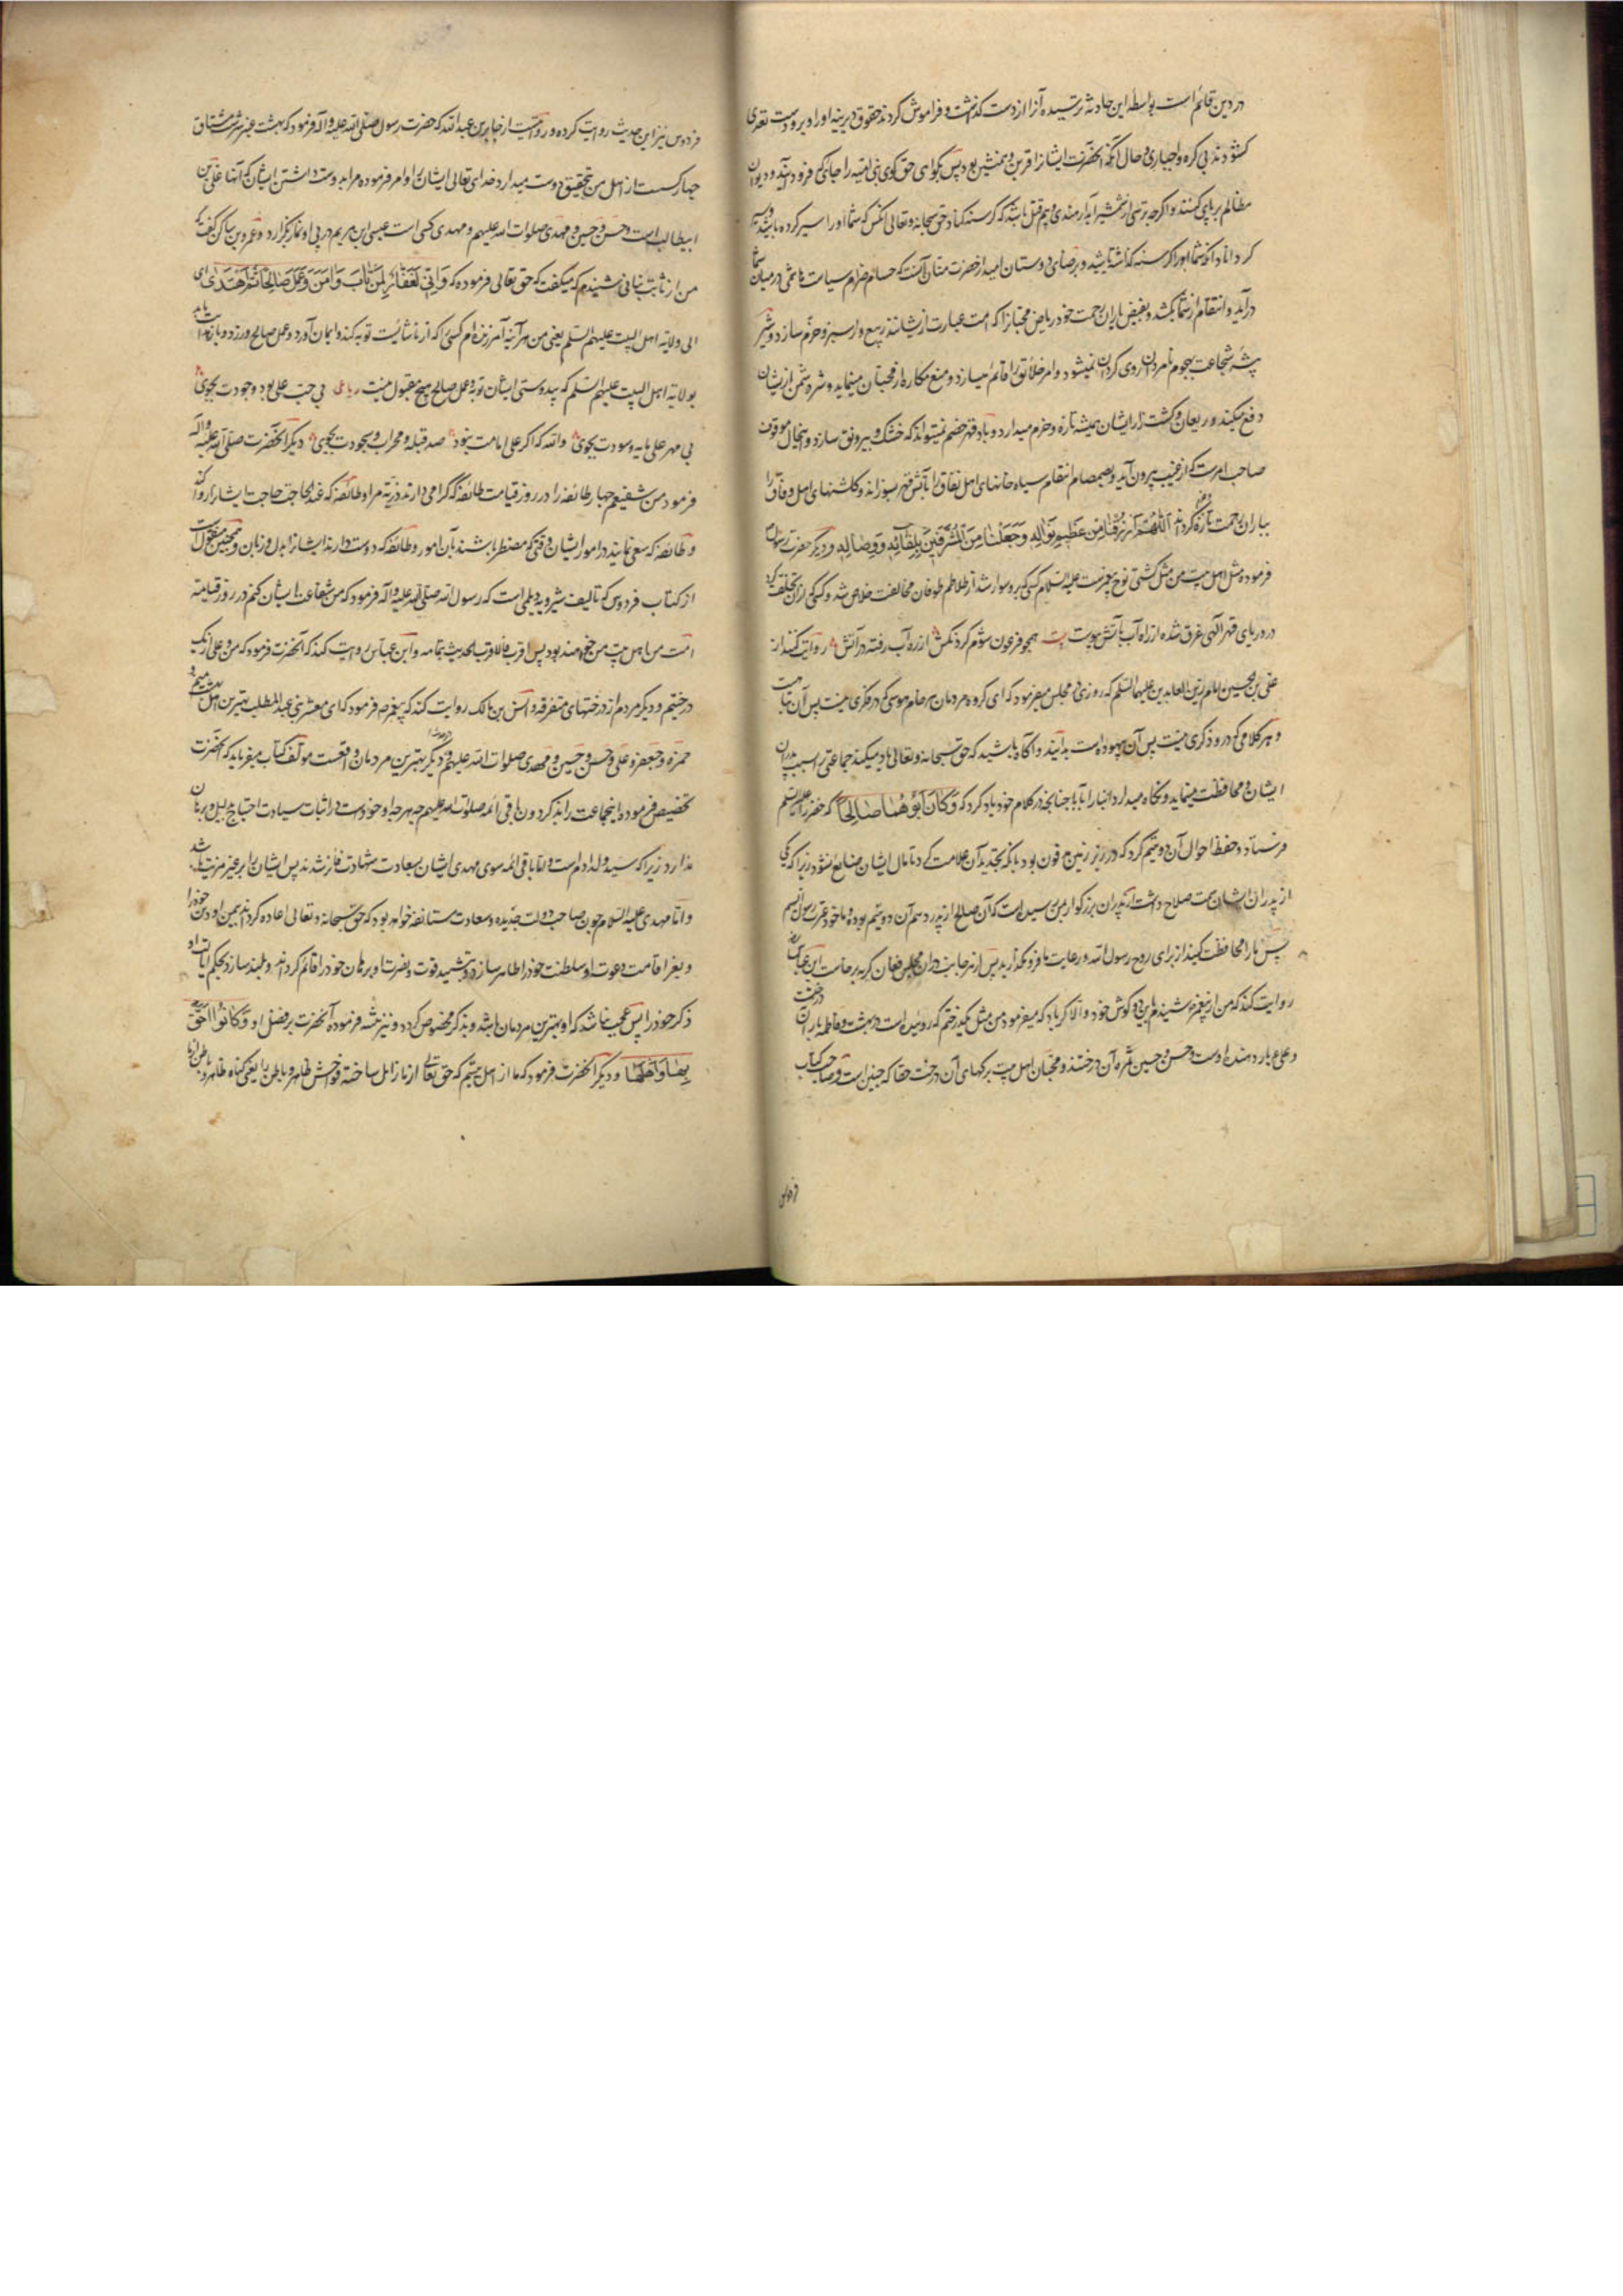 در دین قائم است بواسطه این حادثه نرسیده آنرا از دست گذاشت و فراموش کردند حقوق دیرینه او را و برو دست تعدی
کشودند بی کره و اجباری و حال آنکه آنحضرت ایشانرا قرین و همنشین بود پس بگواهی حق گوی بنی امیه را جائی فرود آیند و دیوان
مظالم برپای کنند و اگرچه برتنی از شمشیر آبدار هندی و بیم قتل باشد که گرسنه کناد حق سبحانه و تعالی آنکس که شما او را سیر کرده باشید و سیر
گرداناد آنکو شما او را گرسنه گذاشته باشید و برضای دوستان امید از حضرت منان آنست که حسام ضرام سیاست هاشمی در میان شما
درآید و انتقام از شما بکشد و بفیض باران رحمت خود ریاض محبانرا که امت عبارت از یشانند ربیع وار سبز و خرم سازد و شیر
بیشه شجاعت بهجوم نامردان روی گردان نمیشود و امر خلائق را قائم میسازد و منع مکاره از محبان مینماید و شر دشمن از یشان
دفع میکند و ریعان و کشت زار ایشان همیشه تازه و خرم میدارد و باد قهر خصم نمیتواند که خشک و بیرونق سازد و اینحال موقوف
صاحب امرست که از غیب بیرون آید و بصمصام انتقام سیاه خانهای اهل نفاق را بآتش قهر بسوزاند و گلشنهای اهل وفاق را
بباران رحمت تازه گرداند اللهم ارزقنا من عظیم نواله وجعلنا من المشرفین بلقائه و وصاله و دیگر حضرت رسول
فرموده مثل اهل بیت من مثل کشتی نوح پیغمبرست علیه السلام کسی که برو سوار شد از تلاطم طوفان مخالفت خلاص شد و کسی که از آن تخلف کرد
در دریای قهر الهی غرق شده از راه آب بآتش پیوست بیت همچو فرعون شوم گر نمکش از ره آب رفته در آتش روایت کنند از
علی بن الحسین امام زین العابدین علیهما السلم که روزی در مجلس میفرمود که ای گروه مردمان هر خاموشی که در فکری نیست پس آن تباهست
و هر کلامی که درو ذکری نیست پس آن بیهوده است بدانید و آگاه باشید که حق سبحانه و تعالی یاد میکند جماعتی را بسبب پدران
ایشان و محافظت مینماید و نگاه میدارد ابنا را بآبا چنانچه در کلام خود یاد کرد که وکان ابوهما صالحا که خضر را علیه السلم
فرستاد و حفظ احوال آن دو یتیم کرد که در زیر زمین مدفون بود بآنکه تجدید آن علامت کرد تا مال ایشان ضایع نشود زیرا که یکی
از پدران ایشان سمت صلاح داشت از پدران بزرگوار بمن رسیده است که آن صالح از پدر دهم آن دو یتیم بوده و ما خود عترت رسول الله ایم
پس ما را محافظت کنید از برای روح رسول الله و رعایت ما فرو مگذارید پس از هر جانب در آن مجلس فغان گریه برخاست ابن عباس
روایت کند که من از پیغمبر شنیدم باین دو گوش خود و الا کر باد که میفرمود من مثل یکدرختم که روییده است در بهشت و فاطمه بار آن درخت
و علی بار دهنده اوست و حسن و حسین ثمره آن درختند و محبان اهل بیت برگهای آن درخت حقا که چنین است و صاحب کتاب
فردوس
فردوس نیز این حدیث روایت کرده و روایتست از جابر بن عبدالله که حضرت رسول صلی الله علیه و آله فرمود که بهشت عنبر سرشت مشتاق
چهار کسست از اهل من بتحقیق دوست میدارد خدای تعالی ایشان را و امر فرموده مرا بدوست داشتن ایشان که آنها علی بن
ابیطالب است و حسن و حسین و مهدی صلوات الله علیهم و مهدی کسی است عیسی ابن مریم در پی او نماز بگزارد و عمرو بن ساکن گفت که
من از ثابت بنانی شنیدم که میگفت که حق تعالی فرموده که وانی لغفار لمن تاب وامن وعمل صالحا ثم اهتدی ای
الی ولایة اهل البیت علیهم السلم یعنی من هرآینه آمرزنده ام کسی را که از ناشایست توبه کند و ایمان آورد و عمل صالح ورزد و باز راه یابد
بولایة اهل البیت علیهم السلم که بیدوستی ایشان توبه و عمل صالح هیچ مقبول نیست رباعی بی حب علی بود وجودت بجوی
بی مهر علی مایه و سودت بجوی والله که اگر علی امامت نبود صد قبله و محراب و سجودت بجوی دیگر آنحضرت صلی الله علیه و آله
فرمود من شفیعم چهار طائفه را در روز قیامت طائفه که گرامی دارند ذریه مرا و طائفه که عند الحاجة حاجت ایشان را روا کنند
و طائفه که سعی نمایند در امور ایشان وقتی که مضطر باشند بآن امور و طائفه که دوست دارند ایشانرا بدل و زبان و همچنین منقول است
از کتاب فردوس که تألیف شیرویه دیلمی است که رسول الله صلی الله علیه و آله فرمود که من شفاعت ایشان کنم در روز قیامة
امت من اهل بیت من خواهند بود پس اقرب فالاقرب الحدیث بتمامه و ابن عباس روایت کند که آنحضرت فرمود که من و علی از یک
درختیم و دیگر مردم از درختهای متفرقه و انس بن مالک روایت کند که پیغمبر فرمود که ای معشر بنی عبدالمطلب بهترین اهل بهشت میم و
حمزه و جعفر و علی و حسن و حسین و مهدی صلوات الله علیهم و دیگر بهترین مردمان واقعست مولف کتاب میفرماید که آنحضرت
تخصیص فرموده اینجماعت را بذکر دون باقی ائمه صلوات الله علیهم چه هرچه او خود است در اثبات سیادت احتیاج بدلیل و برهان
ندارد زیرا که سید ولد آدم است و اما باقی ائمه سوی مهدی ایشان بسعادت شهادت فائز شدند پس ایشان را بر غیر مزیت باشد
و اما مهدی علیه السلام چون صاحب دولت جدیده و سعادت مستانفه خواهد بود که حق سبحانه و تعالی اعاده گرداند بیمن او دین خود را
و بعز اقامت دعوت او سلطنت خود را ظاهر سازد و بتشیید قوت و نصرت او برهان خود را قائم گرداند و بلند سازد بحکم ایالت او
ذکر خود را پس عجب نباشد که او بهترین مردمان باشد و بذکر مخصوص گردد و نیز حثه فرموده آنحضرت بر فضل او وکانوا احق
بها واهلها و دیگر آنحضرت فرمود که ما از اهل بیتیم که حق تعالی از ما زایل ساخته فواحش ظاهر و باطن را یعنی گناه ظاهر و باطن از ما